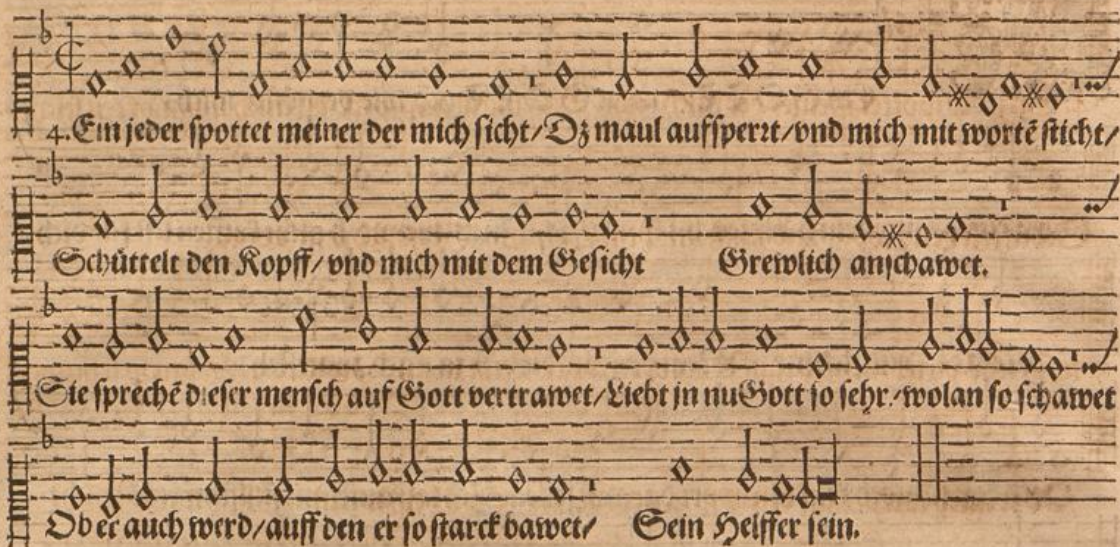 4. Ein jeder spottet meiner der mich sicht/Dz maul aufsperrt/vnd mich mit wortẽ sticht/
Schüttelt den Kopff/vnd mich mit dem Gesicht Grewlich anschawet.
Sie sprechẽ dieser mensch auf Gott vertrawet/Liebt jn nu Gott so sehr/wolan so schawet
Ob er auch werd/auff den er so starck bawet/ Sein Helffer sein.